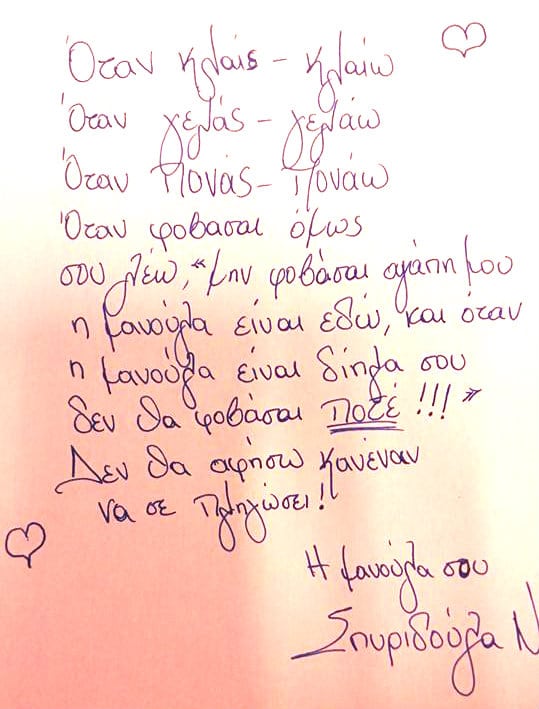 Όταν κλαις - κλαίω
Όταν γελάς - γελάω
Όταν Πονάς - Πονάω
Όταν φοβάσαι όμως
σου λέω, "μην φοβάσαι αγάπη μου
η μανούλα είναι εδώ, και όταν
η μανούλα είναι δίπλα σου
δεν θα φοβάσαι ποτέ!!!"
Δεν θα αφήσω κανέναν
να σε πληγώσει!
Η μανούλα σου
Σπυριδούλα Ν